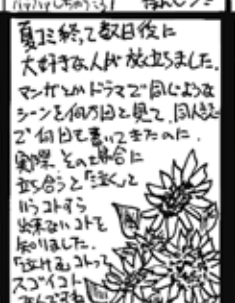 夏コミ終って数日後に
大好きな人が旅立ちました。
マンガとかドラマで同じような
シーンを何万回と見て、同人誌
で何回も書いてきたのに、
実際その場合に
立ち合うと「泣く」と
いうコトすら
出来ないコトを
知りました。
「泣ける」コトって
スゴイコト
なんですね